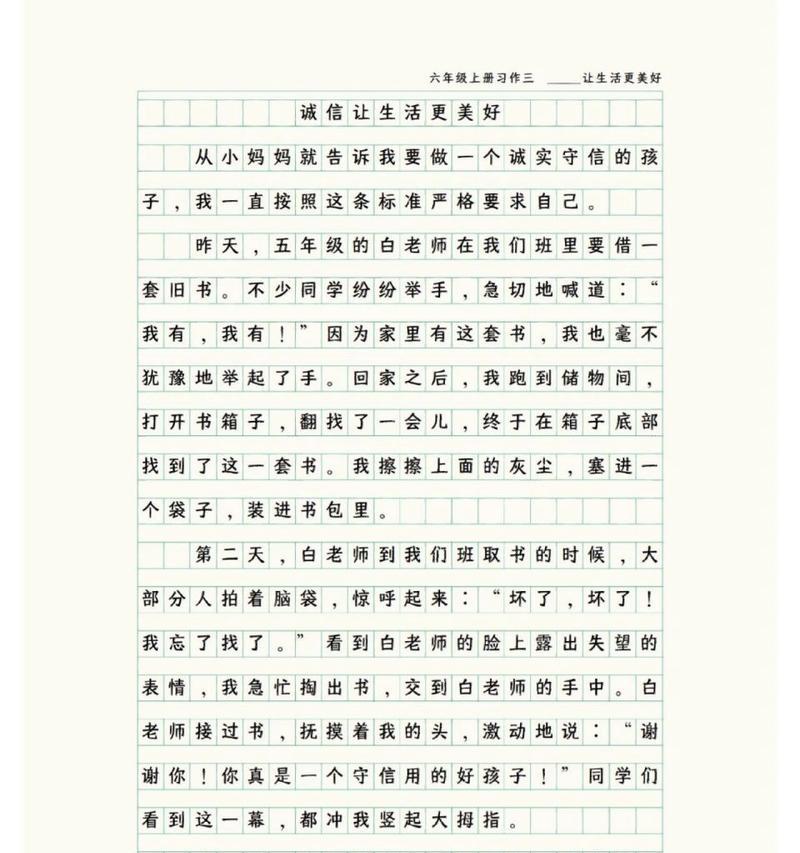 六年级上册习作三 _____让生活更美好
诚信让生活更美好
从小妈妈就告诉我要做一个诚实守信的孩
子，我一直按照这条标准严格要求自己。
昨天，五年级的白老师在我们班里要借一
套旧书。不少同学纷纷举手，急切地喊道：“
我有，我有！”因为家里有这套书，我也毫不
犹豫地举起了手。回家之后，我跑到储物间，
打开书箱子，翻找了一会儿，终于在箱子底部
找到了这一套书。我擦擦上面的灰尘，塞进一
个袋子，装进书包里。
第二天，白老师到我们班取书的时候，大
部分人拍着脑袋，惊呼起来：“坏了，坏了！
我忘了找了。”看到白老师的脸上露出失望的
表情，我急忙掏出书，交到白老师的手中。白
老师接过书，抚摸着我的头，激动地说：“谢
谢你！你真是一个守信用的好孩子！”同学们
看到这一幕，都冲我竖起大拇指。